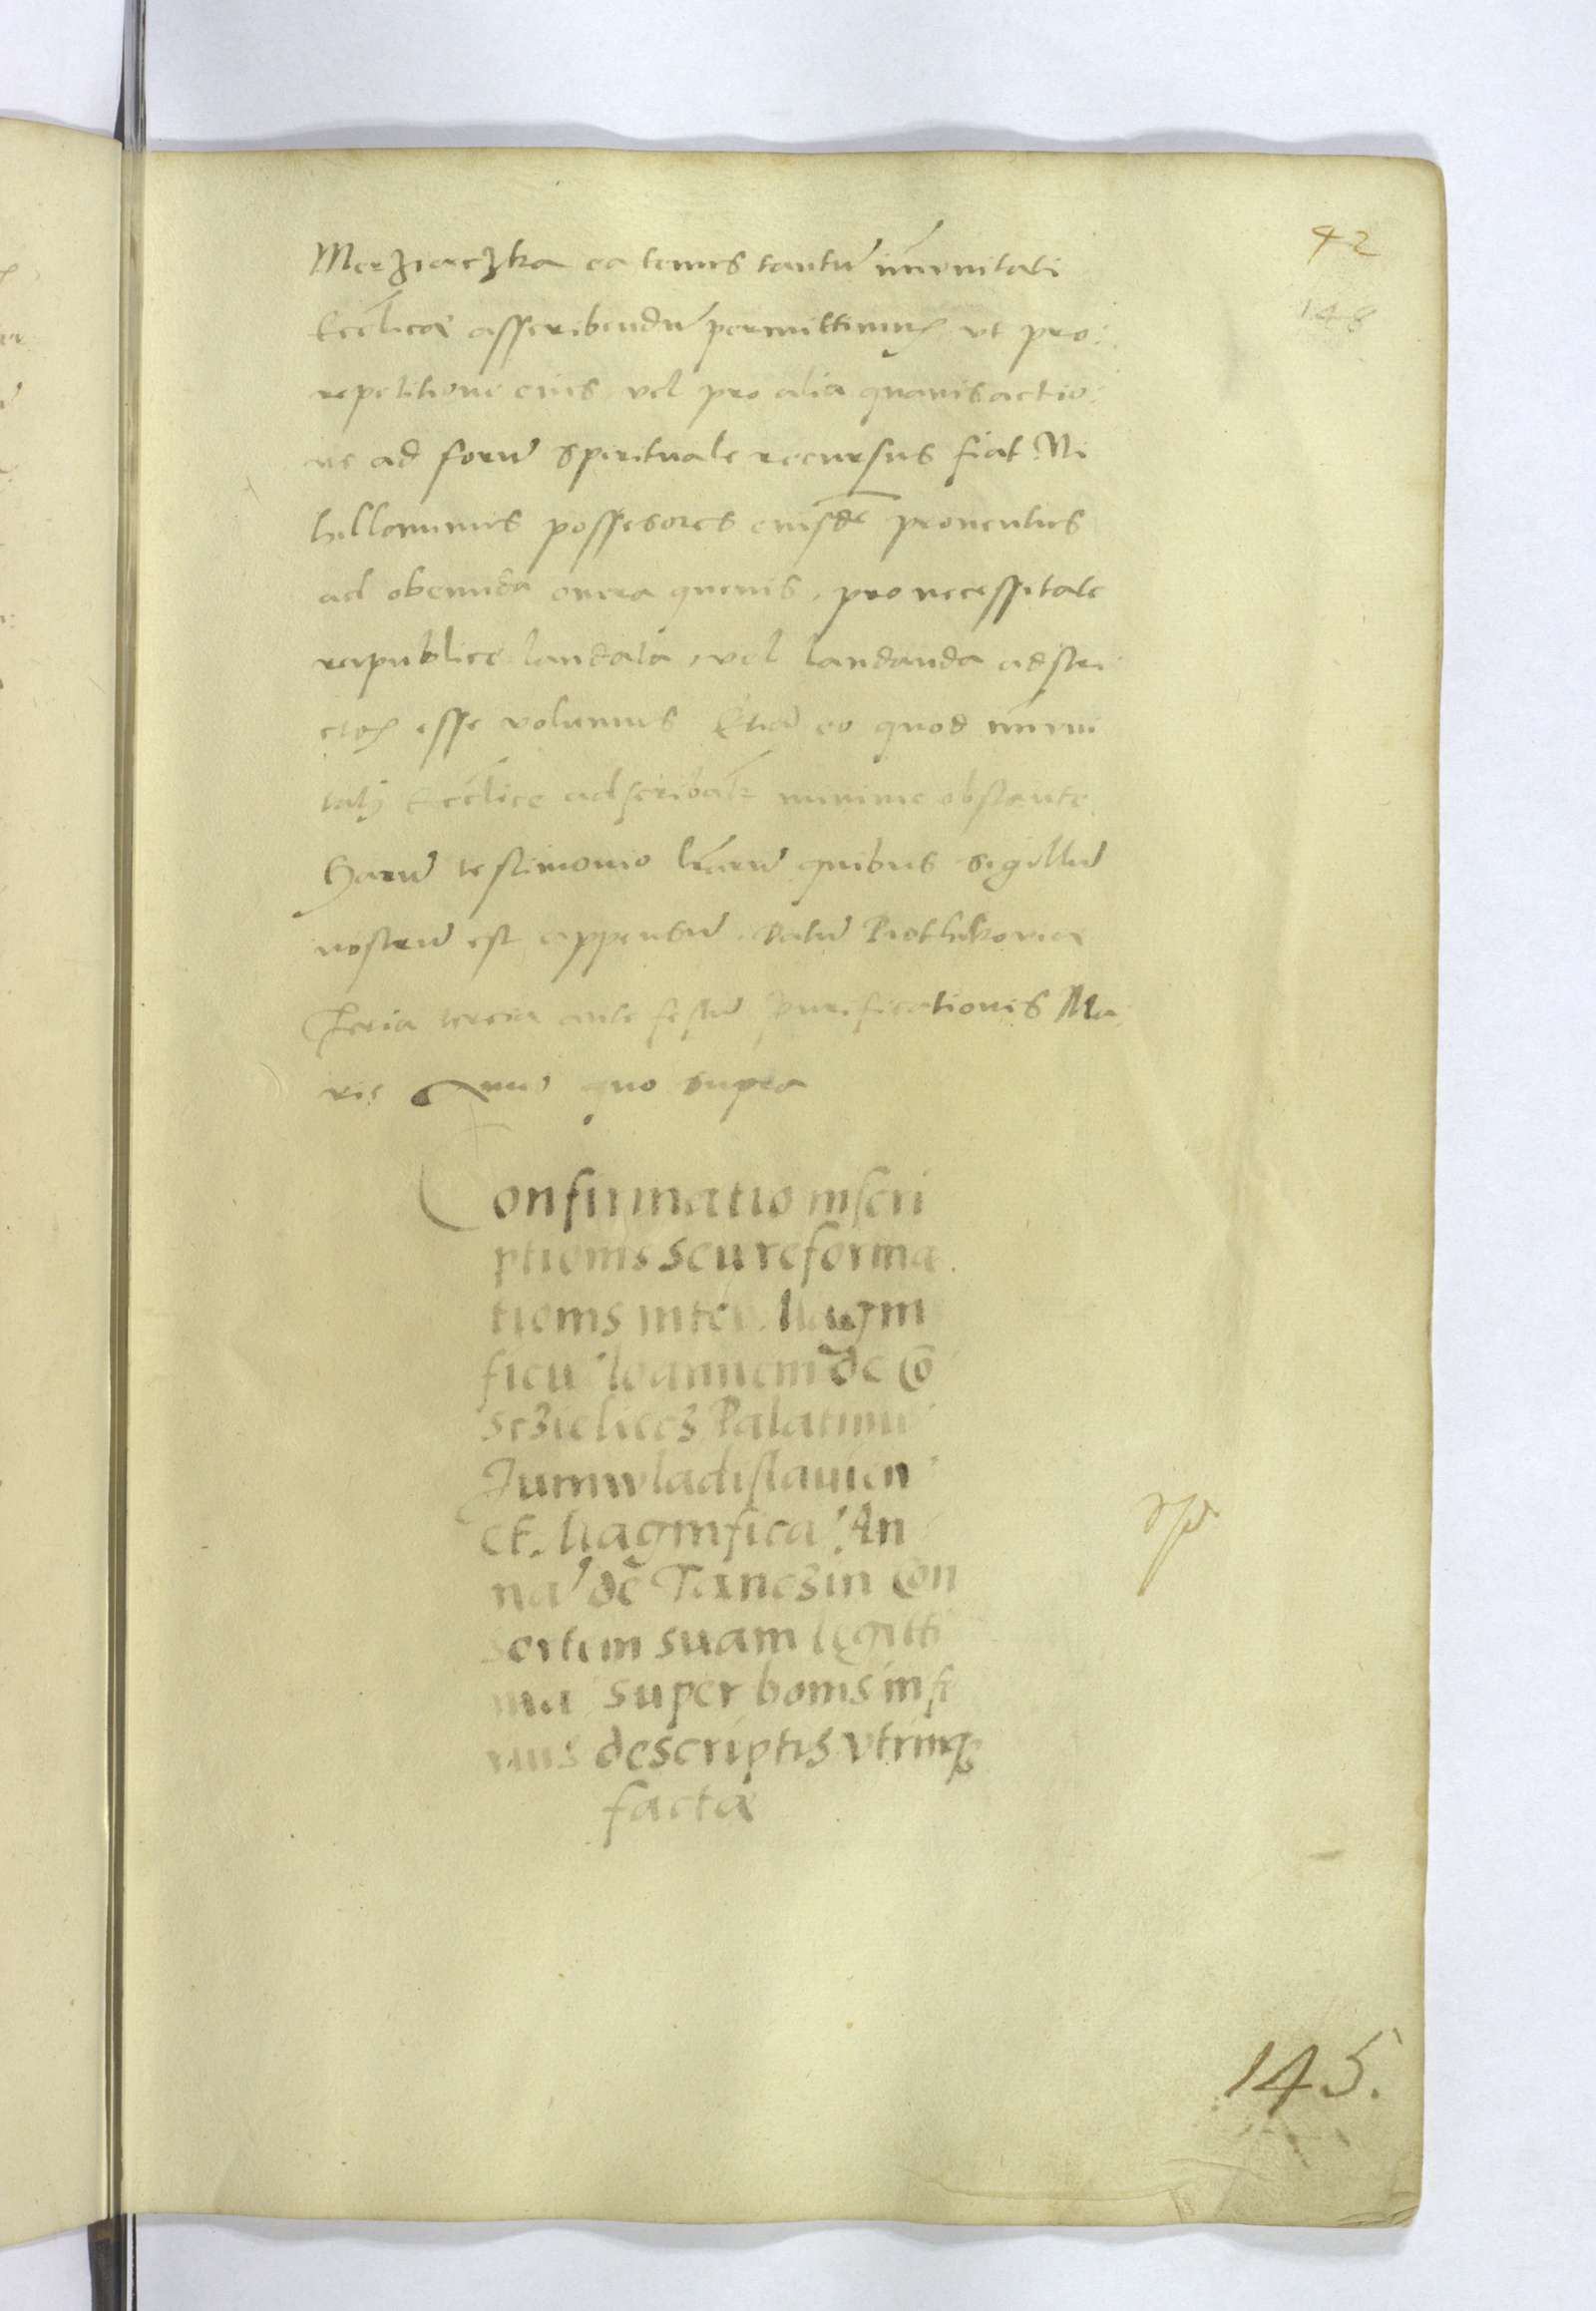 42
148
Merziaczka ea tenus tantu͂ im͂unitati
Eccl͂ica͂ asscribendu͂ permittimus vt pro:
repetitione eius vel pro alia quauis actio:
ne ad foru͂ spirituale recursus fiat Ni
hillominus possesores eiusde͂ prouentus
ad obeunda onera queuis, pro necessitate
reipublice laudata, vel laudanda adstri
ctos esse volumus Etia͂ eo quod im͂uni
tatj Eccl͂ice adscribat͂ minime obstante
Haru͂ testimonio lr͂aru͂ quibus sigillu͂
nostru͂ est appensu͂. Datu͂ Piothrkovia
Feria tercia ante festu͂ Purificationis Ma
rie Anno quo supra
Confirmatio inscri
ptionis seu reforma
tionis inter Magni
ficu͂ Ioannem de Co
sczielecz Palatinu͂
Juniwladislauien͂
et Magnifica͂ An
na͂ de Tenczin Con
sortem suam legitti
ma͂ super bonis infe
rius descriptis vtrinq3
facta
145.